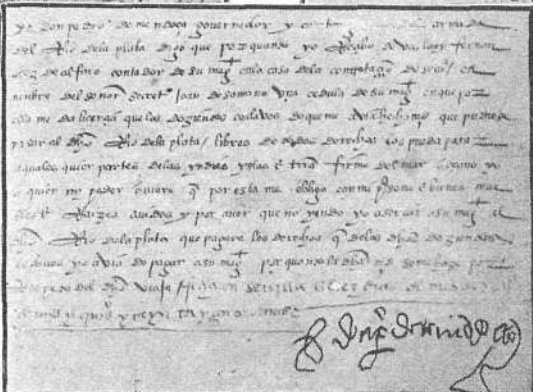 yo don pedro de mendoça governador y capitan armada
del Rio de la plata digo que por quando yo fernan
dez de alfaro contador de su mag en la casa de la contrataçion de en
nonbre del señor secret Joan de samano una cedula de su mag en que por
ella me da liçençia que los dozientos esclavos de que me avia hecho que pudiese
pasar al dho Rio de la plata libres de todos derechos los pueda pasar
a qualesquier partes de las yndias yslas e trra firme del mar oceano yo
o quien mi poder oviere q por esta me obligo con mi persona e bienes mue
bles e Raizes avidos y por aver que no yendo yo a servir a su mag al
dho Rio de la plata que pagare los derechos q de los dhos dozientos
esclavos yo avia de pagar a su mag por quanto la dha md se me haze por
Respeto del dho viaje fecha en sevilla a dias del mes de
de mill y quis y treynta y cinco años
don po de mendoça